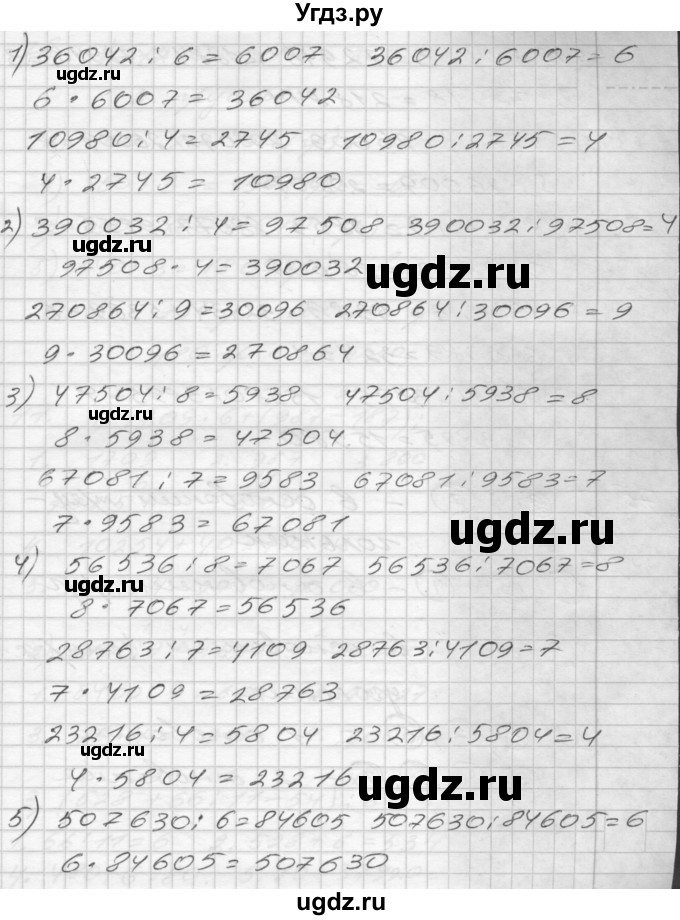 Угдз.ру
1) 36042 : 6 = 6007 36042 : 6007 = 6
ugdz.ru
6 · 6007 = 36042
10980 : 4 = 2745 10980 : 2745 = 4
4 · 2745 = 10980
2) 390032 : 4 = 97508 390032 : 97508 = 4
ugdz.ru
97508 · 4 = 390032
ugdz.ru
270864 : 9 = 30096 270864 : 30096 = 9
9 · 30096 = 270864
3) 47504 : 8 = 5938 47504 : 5938 = 8
ugdz.ru
8 · 5938 = 47504
67081 : 7 = 9583 67081 : 9583 = 7
7 · 9583 = 67081
ugdz.ru
4) 56536 : 8 = 7067 56536 : 7067 = 8
ugdz.ru
8 · 7067 = 56536
28763 : 7 = 4109 28763 : 4109 = 7
7 · 4109 = 28763
23216 : 4 = 5804 23216 : 5804 = 4
ugdz.ru
4 · 5804 = 23216
ugdz.ru
5) 507630 : 6 = 84605 507630 : 84605 = 6
6 · 84605 = 507630
ugdz.ru